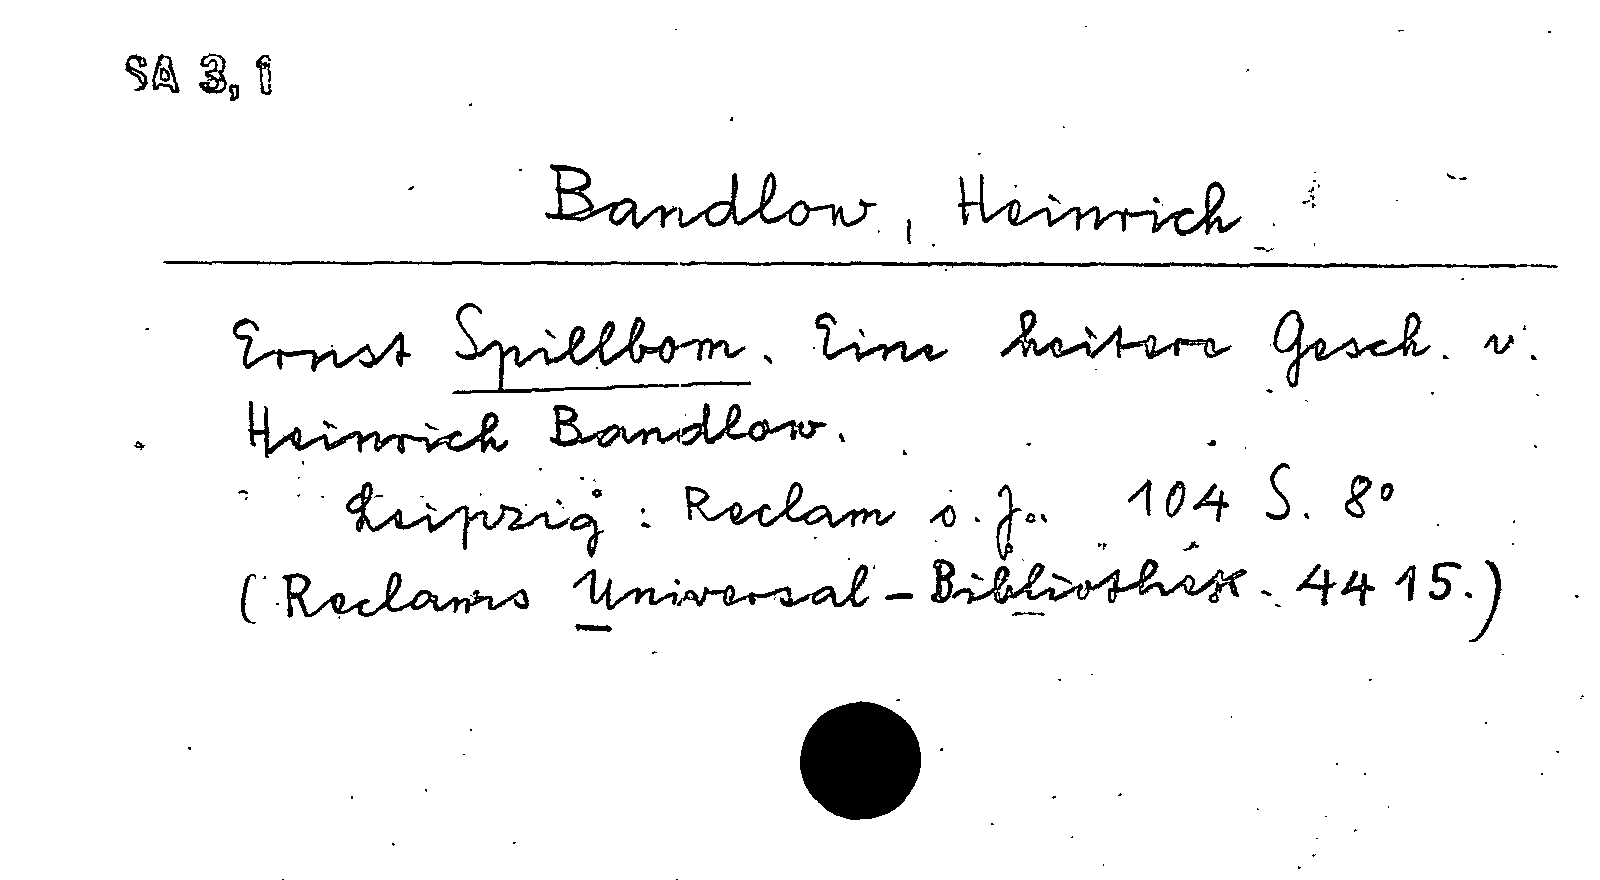 SA 3,1
Bandlow, Heinrich
Ernst Spillbom. Eine heitere Gesch. v.
Heinrich Bandlow.
Leipzig: Reclam o. J. 104 S. 8°
(Reclams Universal-Bibliothek. 4415.)